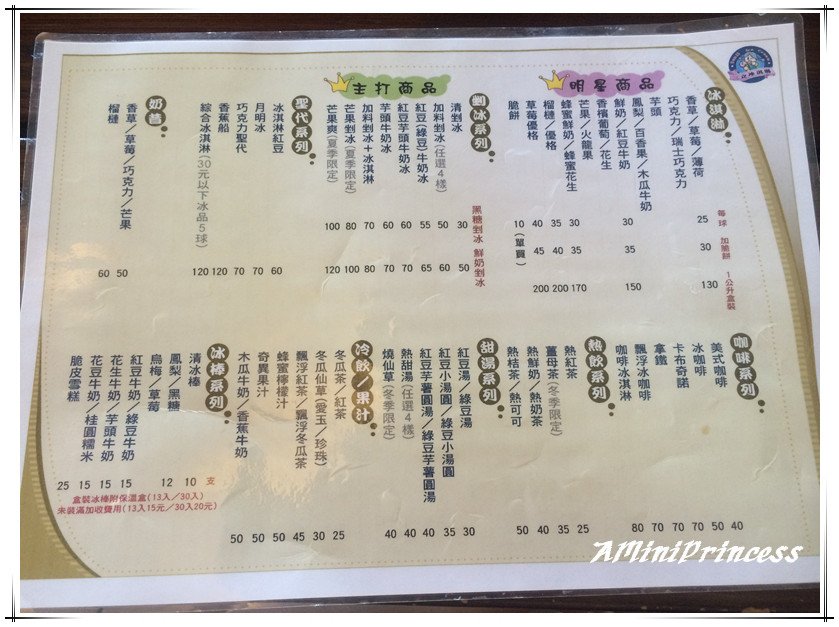 明星商品
冰淇淋系列
每球
加脆餅
1公升盒裝
香草／草莓／薄荷
巧克力／瑞士巧克力
25
30
130
芋頭
鳳梨／百香果／木瓜牛奶
鮮奶／紅豆牛奶
香檳葡萄／花生
30
35
150
芒果／火龍果
蜂蜜鮮奶／蜂蜜花生
30
35
170
榴槤／優格
35
40
200
草莓優格
40
45
200
脆餅
10(單買)
主打商品
剉冰系列
黑糖剉冰
鮮奶剉冰
清剉冰
30
50
加料剉冰(任選4樣)
50
60
紅豆(綠豆)牛奶冰
55
65
紅豆芋頭牛奶冰
60
70
芋頭牛奶冰
60
70
加料剉冰＋冰淇淋
70
80
芒果剉冰(夏季限定)
80
100
芒果爽(夏季限定)
100
120
聖代系列
冰淇淋紅豆
60
月明冰
70
巧克力聖代
70
香蕉船
120
綜合冰淇淋(30元以下冰品5球)
120
奶昔
香草／草莓／巧克力／芒果
50
榴槤
60
咖啡系列
美式咖啡
40
冰咖啡
50
卡布奇諾
70
拿鐵
70
飄浮冰咖啡
70
咖啡冰淇淋
80
熱飲系列
熱紅茶
25
薑母茶(冬季限定)
35
熱鮮奶／熱奶茶
40
熱桔茶／熱可可
50
甜湯系列
紅豆湯／綠豆湯
30
紅豆小湯圓／綠豆小湯圓
35
紅豆芋薯圓湯／綠豆芋薯圓湯
40
熱甜湯(任選4樣)
40
燒仙草(冬季限定)
40
冷飲／果汁
冬瓜茶／紅茶
25
冬瓜仙草(愛玉／珍珠)
30
飄浮紅茶／飄浮冬瓜茶
45
蜂蜜檸檬汁
50
奇異果汁
50
木瓜牛奶／香蕉牛奶
50
冰棒系列
支
清冰棒
10
鳳梨／黑糖
烏梅／草莓
12
紅豆牛奶／綠豆牛奶
15
花生牛奶／芋頭牛奶
15
花豆牛奶／桂圓糯米
15
脆皮雪糕
25
盒裝冰棒附保溫盒(13入／30入)
未裝滿加收費用(13入15元／30入20元)
AMiniPrincess